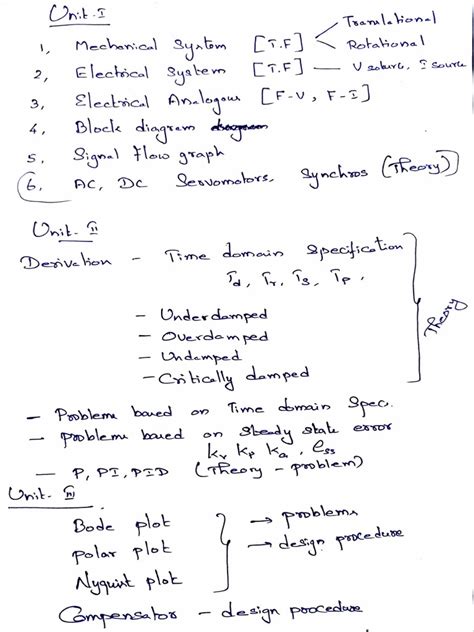 Unit-I
1, Mechanical System [T.F] Translational
Rotational
2, Electrical System [T.F] — V source, I source
3, Electrical Analogous [F-V, F-I]
4, Block diagram
5. Signal Flow graph
6. AC, DC Servomotors, Synchros (Theory)
Unit-II
Derivation - Time domain Specification
Td, Tr, Ts, Tp,
- Underdamped
- Overdamped
- Undamped
- Critically damped
Theory
- Problems based on Time domain Spec.
- problems based on Steady state error
Kv Kp Ka, ess
- P, PI, PID (Theory - problem)
Unit-III
Bode plot
polar plot
Nyquist plot
→ problems
→ design procedure
Compensator - design procedure